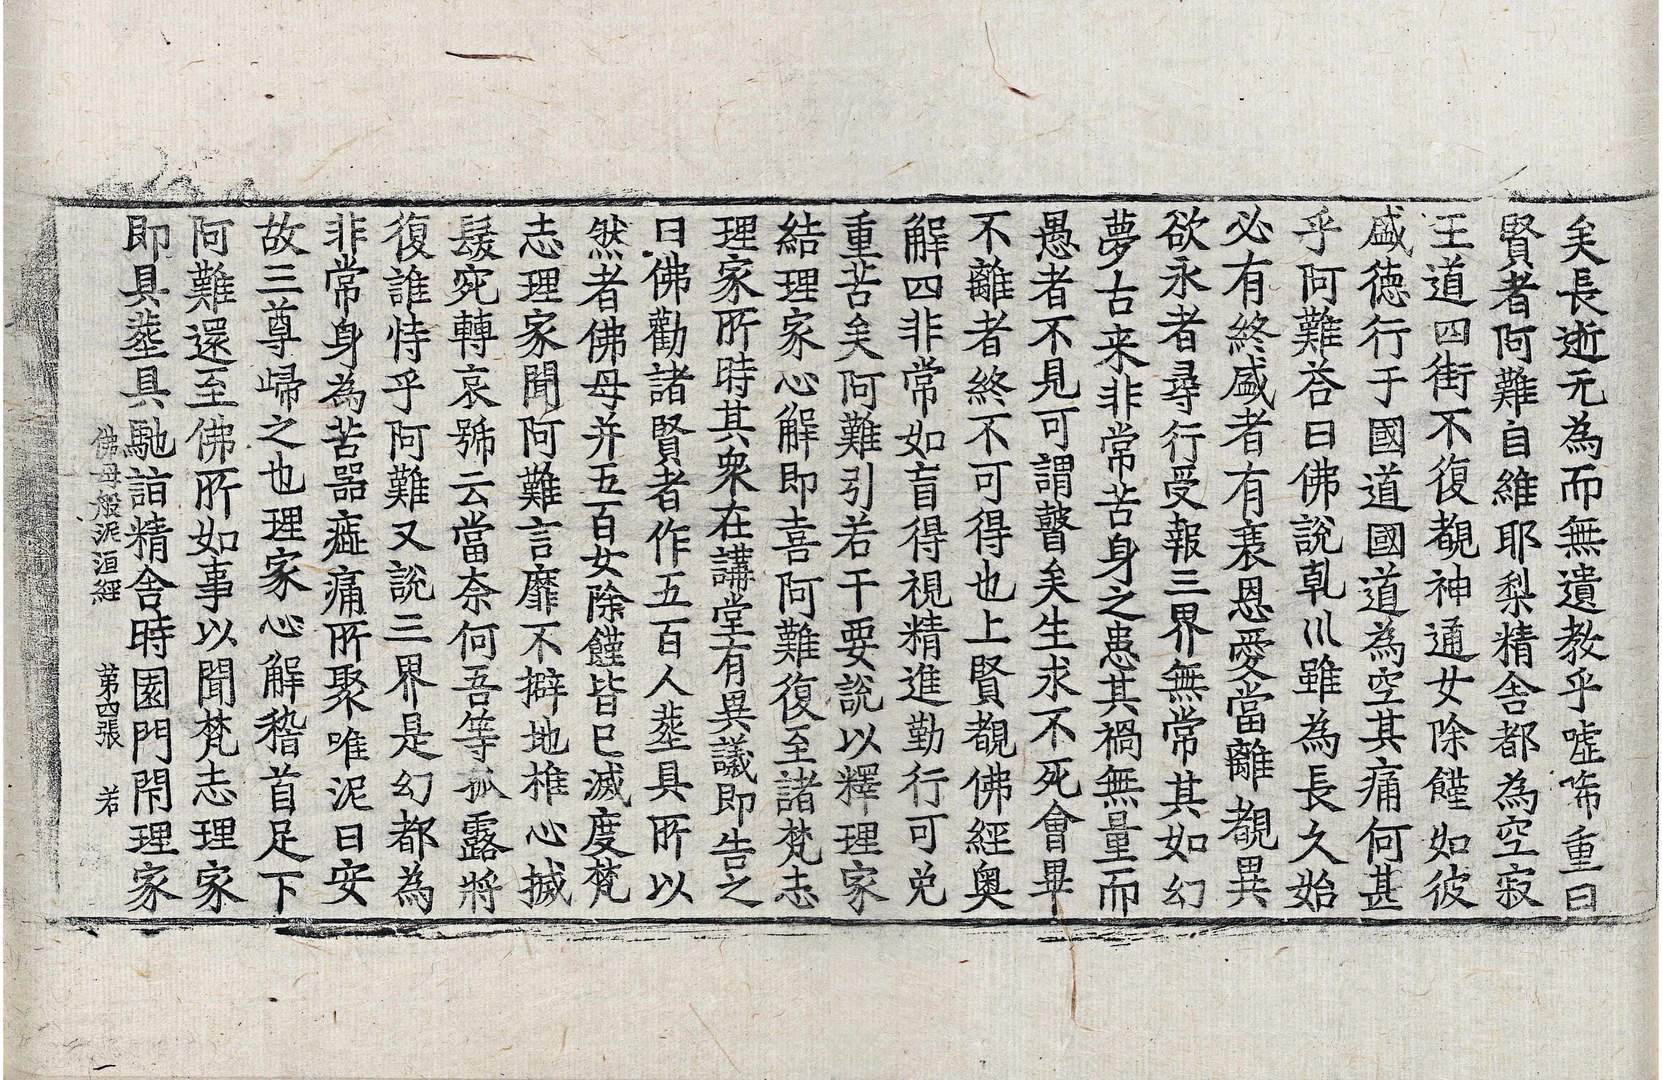 矣長逝元為而無遺教乎嘘唏重曰
賢者阿難自維耶梨精舍都為空寂
王道四街不復覩神通女除饉如彼
盛德行于國道國道為空其痛何甚
乎阿難荅曰佛說乹川雖為長久始
必有終盛者有衰恩愛當離覩異
欲永者尋行受報三界無常其如幻
夢古来非常苦身之患其禍無量而
愚者不見可謂瞽矣生求不死會畢
不離者終不可得也上賢覩佛經奥
解四非常如盲得視精進勤行可免
重苦矣阿難引若干要說以釋理家
結理家心解即喜阿難復至諸梵志
理家所時其衆在講堂有異議即告之
曰佛勸諸賢者作五百人葬具所以
然者佛母并五百女除饉皆已滅度梵
志理家聞阿難言靡不擗地椎心搣
髮宛轉哀號云當奈何吾等孤露將
復誰恃乎阿難又說三界是幻都為
非常身為苦器癡痛所聚唯泥曰安
故三尊歸之也理家心解稽首足下
阿難還至佛所如事以聞梵志理家
即具葬具馳詣精舍時園門閇理家
佛母般泥洹經 第四張 若